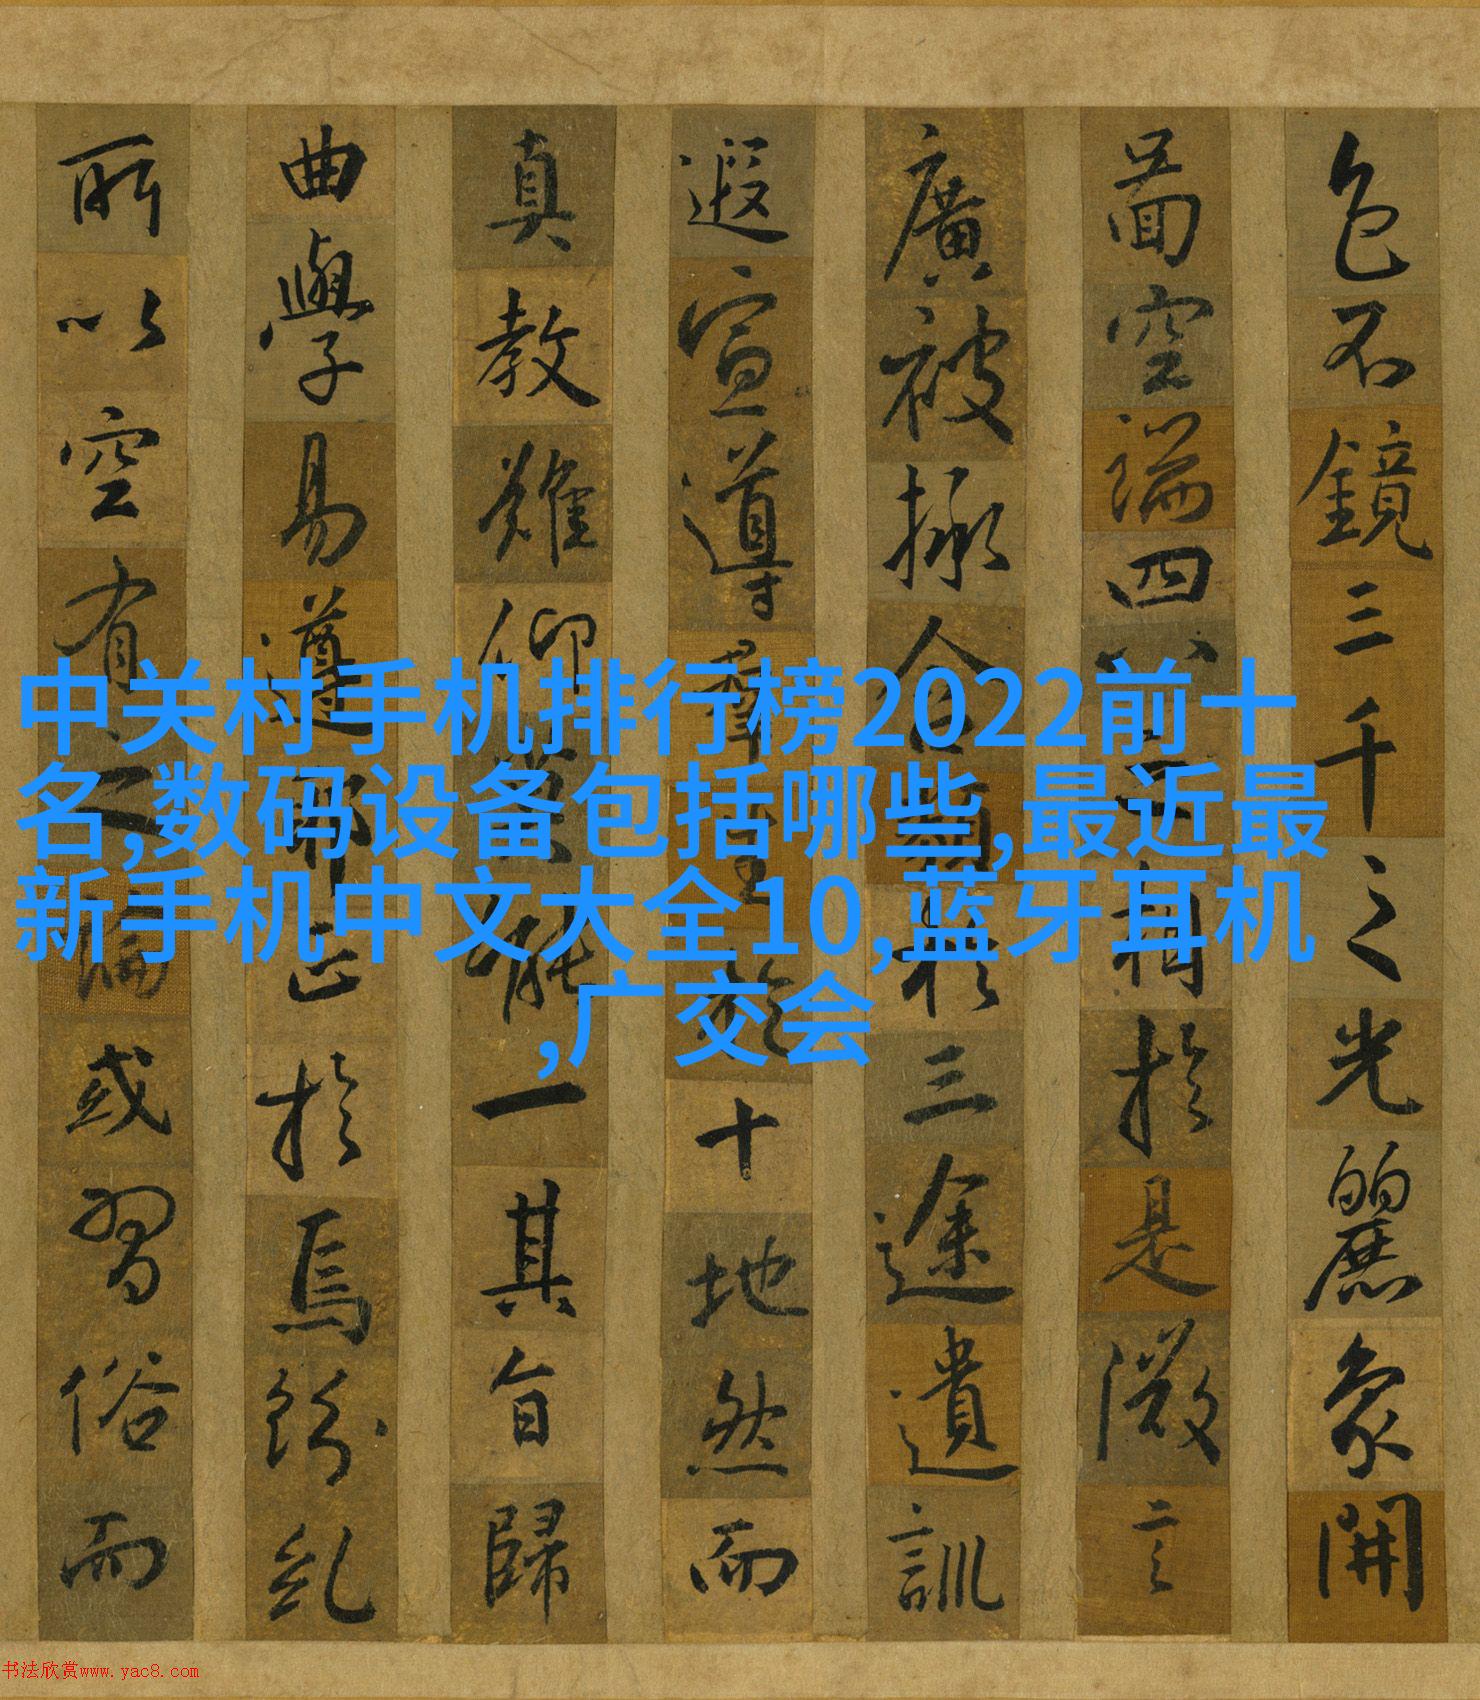 色不鏡三千之光麗象開
啚空端四八之相於是微言
廣被拯含類於三途遺訓
遐宣導群生於十地然而
真教難仰莫能一其旨歸
曲學易遵邪正於焉紛糺
所以空有之論或習俗而
中关村手机排行榜2022前十
名,数码设备包括哪些,最近最
新手机中文大全10,蓝牙耳机
,广交会
书法欣赏www.yac8.com